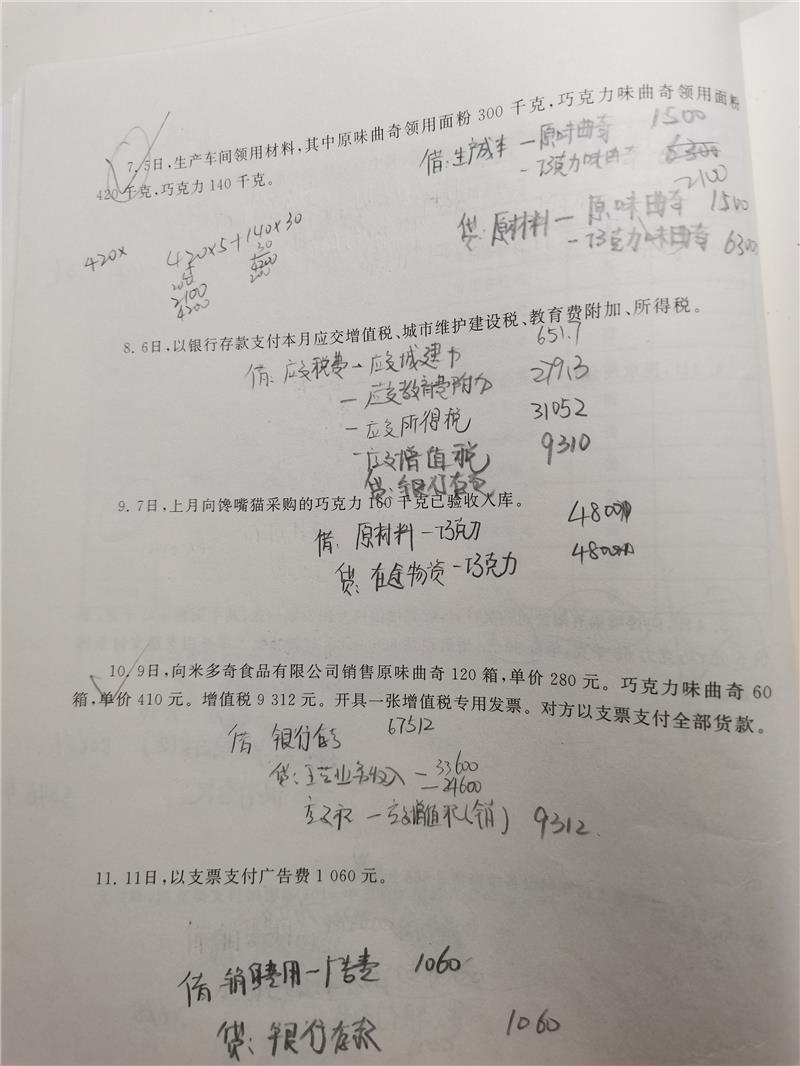 7. 5日,生产车间领用材料,其中原味曲奇领用面粉 300 千克,巧克力味曲奇领用面粉
420 千克,巧克力 140 千克。
借:生产成本 — 原味曲奇 1500
- 巧克力味曲奇 6300
2100
贷:原材料 — 原味曲奇 1500
- 巧克力味曲奇 6300
420× 420×5+140×30
30
2100 4200
4200
8. 6日,以银行存款支付本月应交增值税、城市维护建设税、教育费附加、所得税。
借:应交税费 — 应交城建 651.7
— 应交教育费附加 279.3
— 应交所得税 31052
- 应交增值税 9310
贷:银行存款
9. 7日,上月向馋嘴猫采购的巧克力 160 千克已验收入库。
借:原材料 — 巧克力 4800
贷:在途物资 - 巧克力 4800
10. 9日,向米多奇食品有限公司销售原味曲奇 120 箱,单价 280 元。巧克力味曲奇 60
箱,单价 410 元。增值税 9 312 元。开具一张增值税专用发票。对方以支票支付全部货款。
借 银行存 67512
贷:主营业务收入 — 33600
— 24600
应交税 — 应交增值税(销) 9312
11. 11日,以支票支付广告费 1 060 元。
借 销售费用 — 广告费 1060
贷:银行存款 1060